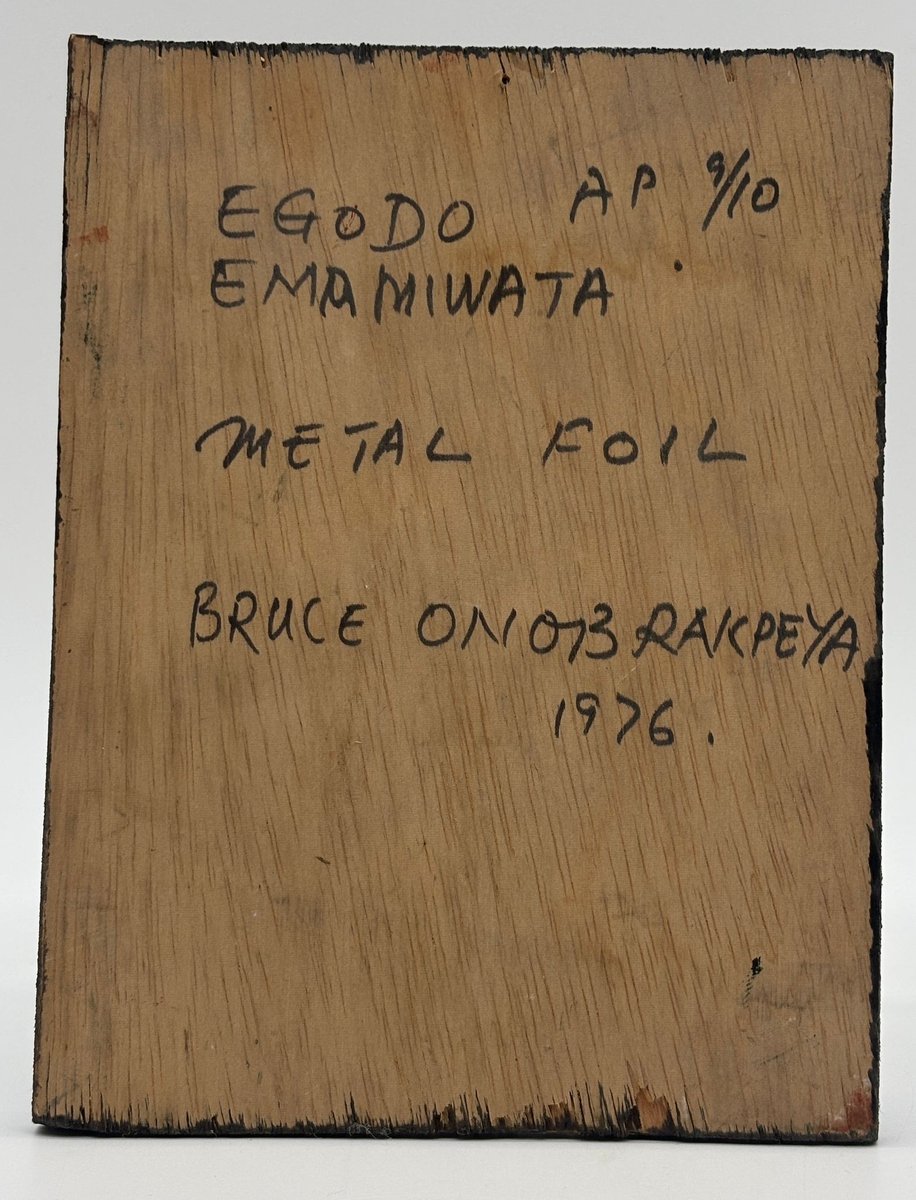 EGODO AP 9/10
EMAMIWATA
METAL FOIL
BRUCE ONOBRAKPEYA
1976.